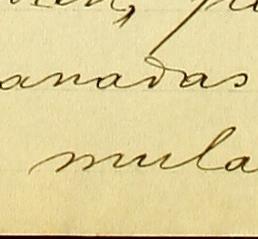 anadas
mula